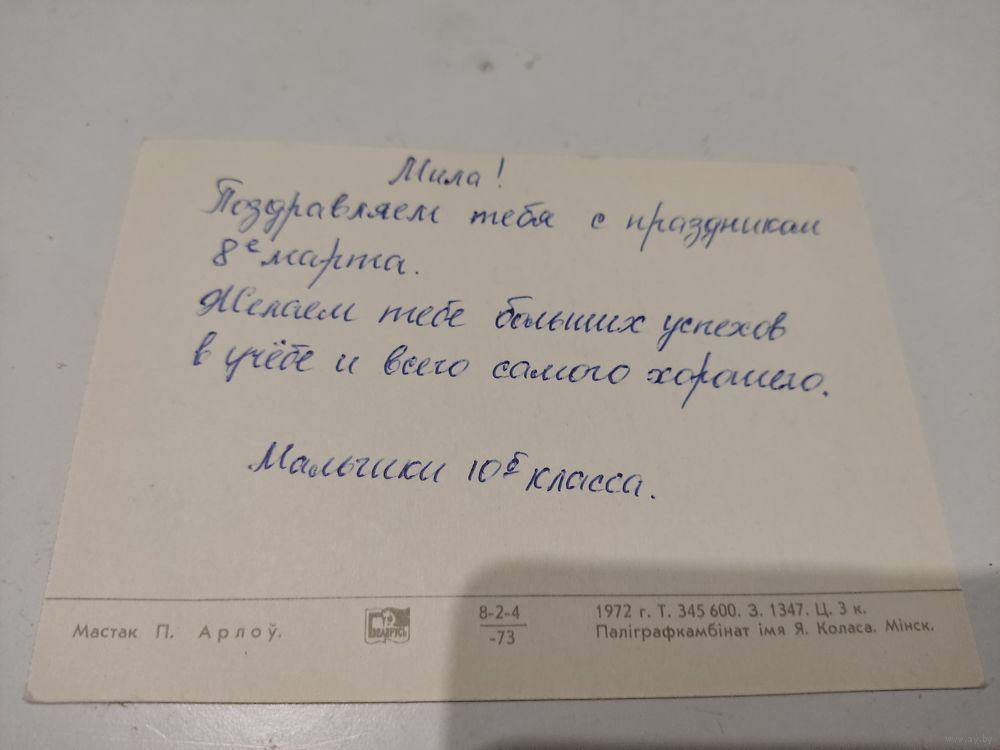 Мила!
Поздравляем тебя с праздником
8е марта.
Желаем тебе больших успехов
в учёбе и всего самого хорошего.
Мальчики 10б класса.
Мастак П. Арлоў.
БЕЛАРУСЬ
8-2-4
-73
1972 г. Т. 345 600. З. 1347. Ц. 3 к.
Паліграфкамбінат імя Я. Коласа. Мінск.
www.ay.by